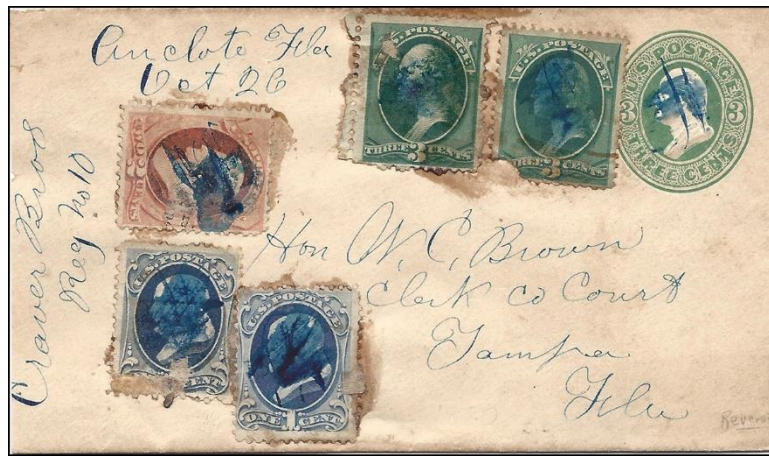 Anclote Fla
Oct 26
Craver Bros
Reg No 10
U.S. POSTAGE
THREE 3 CENTS
U.S. POSTAGE
THREE 3 CENTS
U.S. POSTAGE
3 3
THREE CENTS
U.S. POSTAGE
CENT
U.S. POSTAGE
ONE 1 CENT
Hon W. C. Brown
Clerk co Court
Tampa
Fla